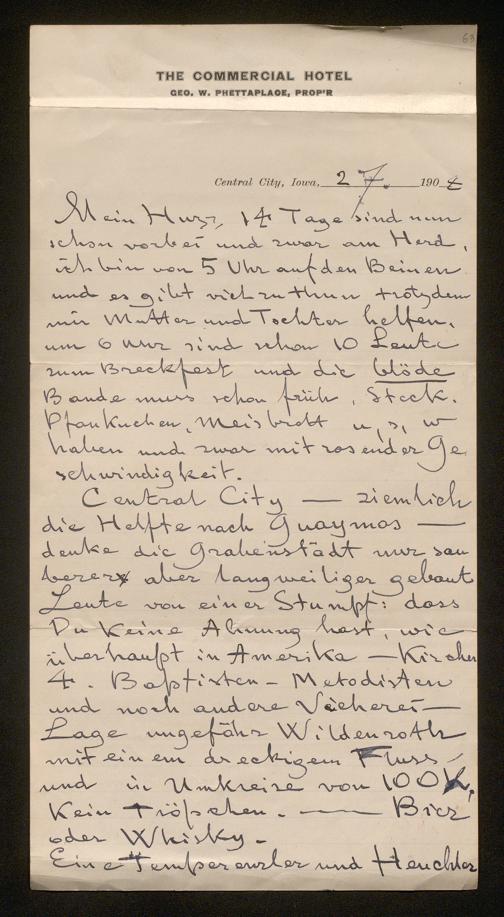 63
THE COMMERCIAL HOTEL
GEO. W. PHETTAPLACE, PROP'R
Central City, Iowa, 2 7. 1904
Mein Husz, 14 Tage sind nun
schon vorbei und zwar am Herd,
ich bin von 5 Uhr auf den Beinen
und es gibt viel zu thun trotzdem
mir Mutter und Tochter helfen.
um 6 Uhr sind schon 10 Leute
zum Breckfest und die blöde
Bande muss schon früh, Steck.
Pfankuchen, Meisbrott u, s, w
haben und zwar mit rasender Ge
schwindigkeit.
Central City — ziemlich
die Helfte nach Guaymos —
denke die Grabenstädt nur sau
berer aber langweiliger gebaut
Leute von einer Stumpf: dass
Du keine Ahnung hast, wie
überhaupt in Amerika — Kirchen
4. Baptisten - Metodisten
und noch andere Viecherei —
Lage ungefähr Wildenroth
mit einem dreckigem Fluss -
und in Umkreise von 100 K,
Kein Tröpfchen. — Bier
oder Whisky -
Eine Temperenzler und Heuchler